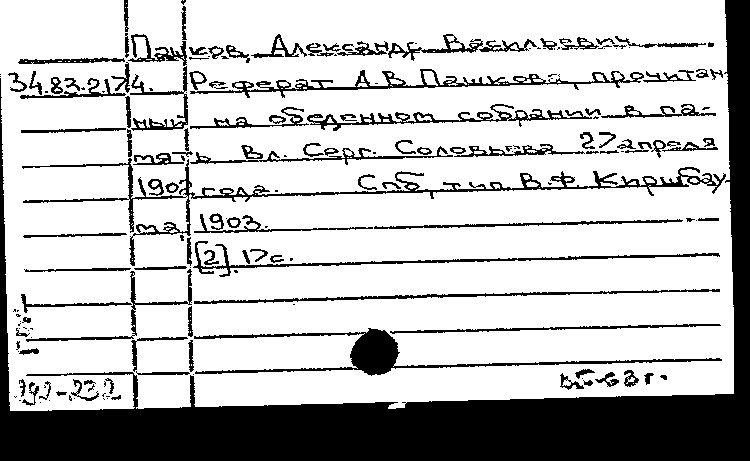 Пашков, Александр Васильевич
34.83.2174. Реферат А.В. Пашкова, прочитан-
ный на обеденном собрании в па-
мять Вл. Серг. Соловьева 27 апреля
1902 года. Спб, тип В.Ф. Киршбау-
ма, 1903.
[2], 17с.
292-232